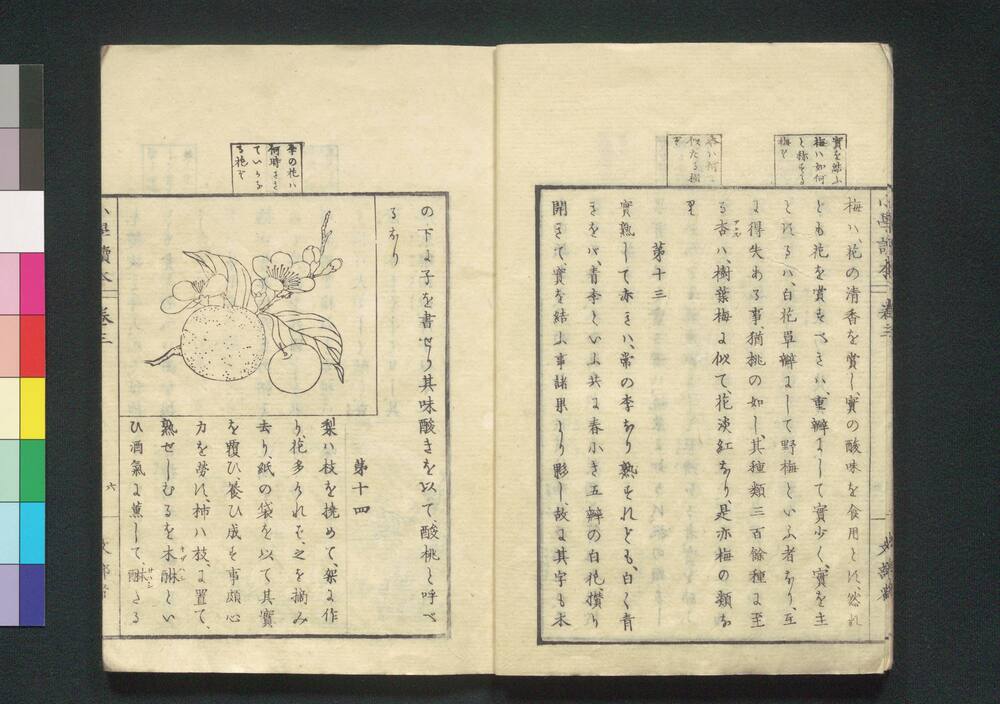 實を結ふ
梅ハ如何
と称する
梅ぞ
小學讀本 卷三
梅ハ、花の清香を賞し、實の酸味を食用とす、然れ
ども花を賞すべきハ、重瓣にして實少く、實を主
とするハ、白花單瓣にして野梅といふ者なり、互
に得失ある事、猶桃の如し、其種類三百餘種に至
る杏ハ、樹葉梅に似て、花淡紅なり、是亦梅の類な
り
第十三
實熟して赤きハ、常の李なり熟すれども、白く青
きをバ、青李といふ共に春小き五瓣の白花、攅り
開きて、實を結ふ事諸果より夥し故に其字も木
梨の花ハ
何時さき
ていかな
る花ぞ
の下に子を書せり其味酸きを以て、酸桃と呼べ
るなり
第十四
梨ハ枝を撓めて、架に作
り、花多けれバ、之を摘み
去り、紙の袋を以て其實
を覆ひ、養ひ成す事頗心
力を勞す、柿ハ枝に置て、
熟せしむるを木醂とい
ひ酒氣に薫して、醂たる
小學讀本 卷三
六
文部省